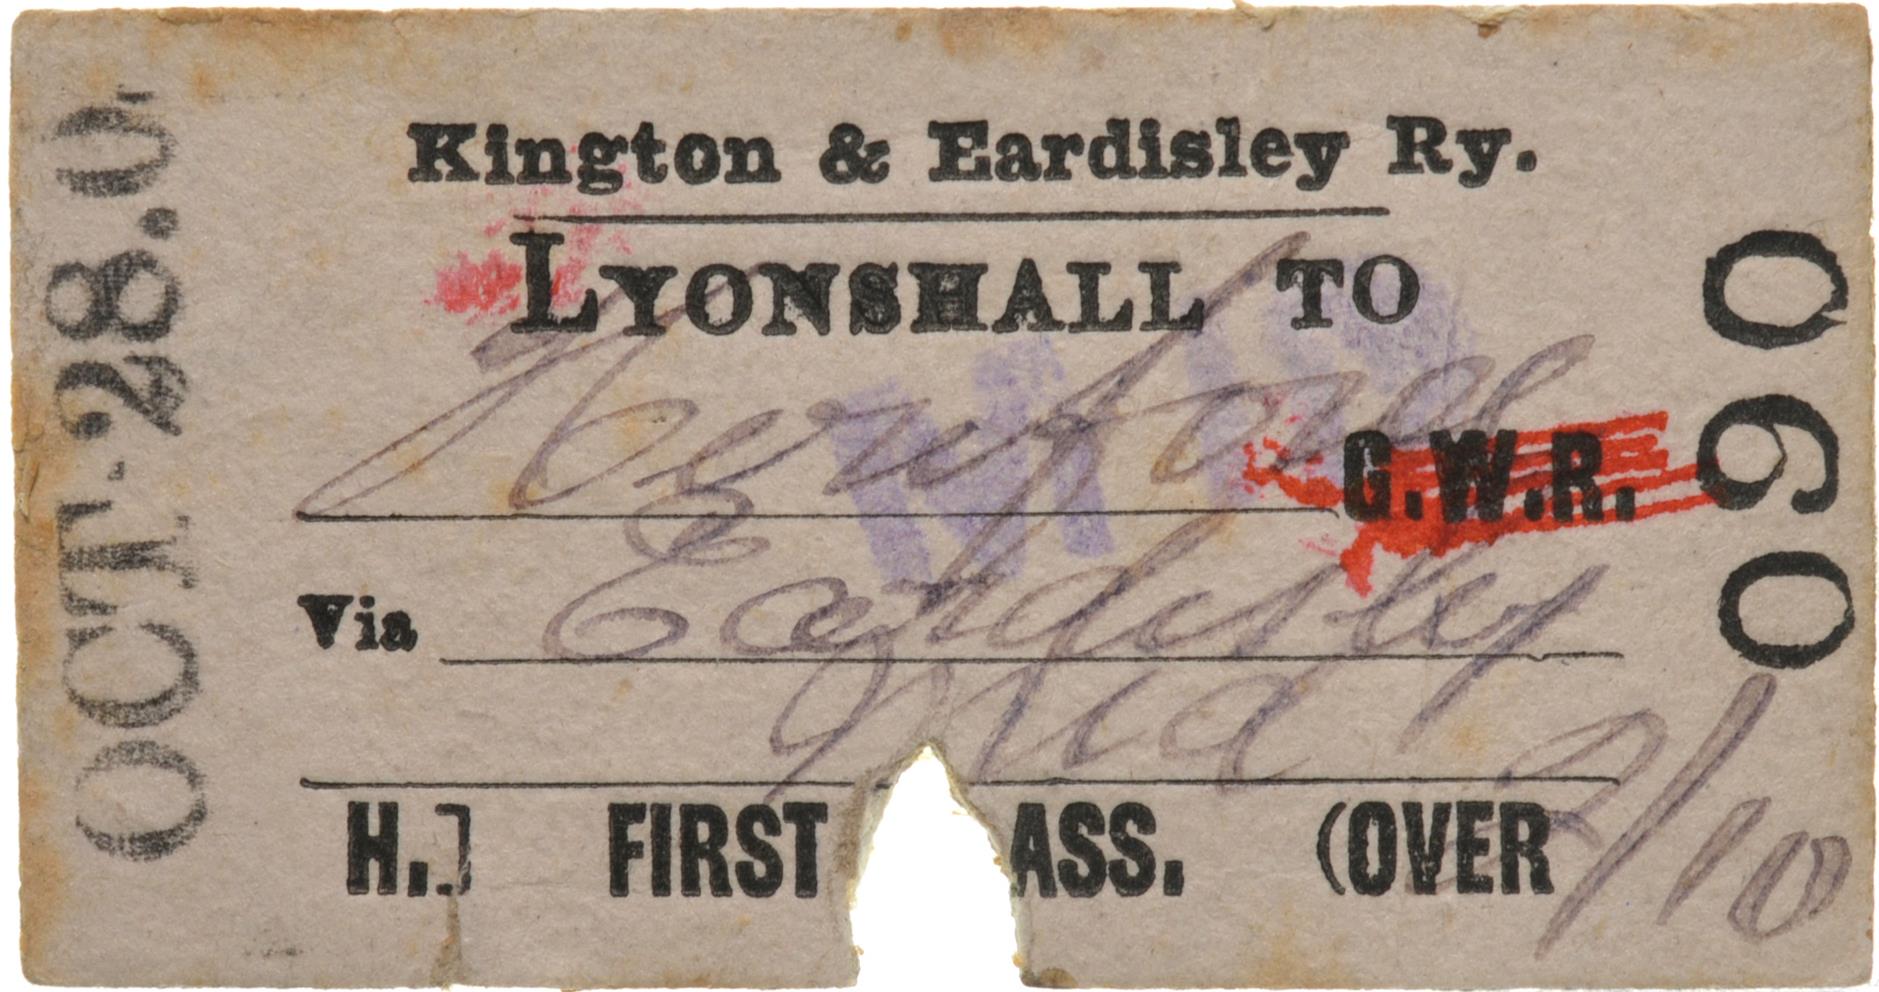 Kington & Eardisley Ry.
LYONSHALL TO
Hereford G.W.R.
Via Eardisley
Mid
H.] FIRST ASS. (OVER
2/10
090
OCT.28.0